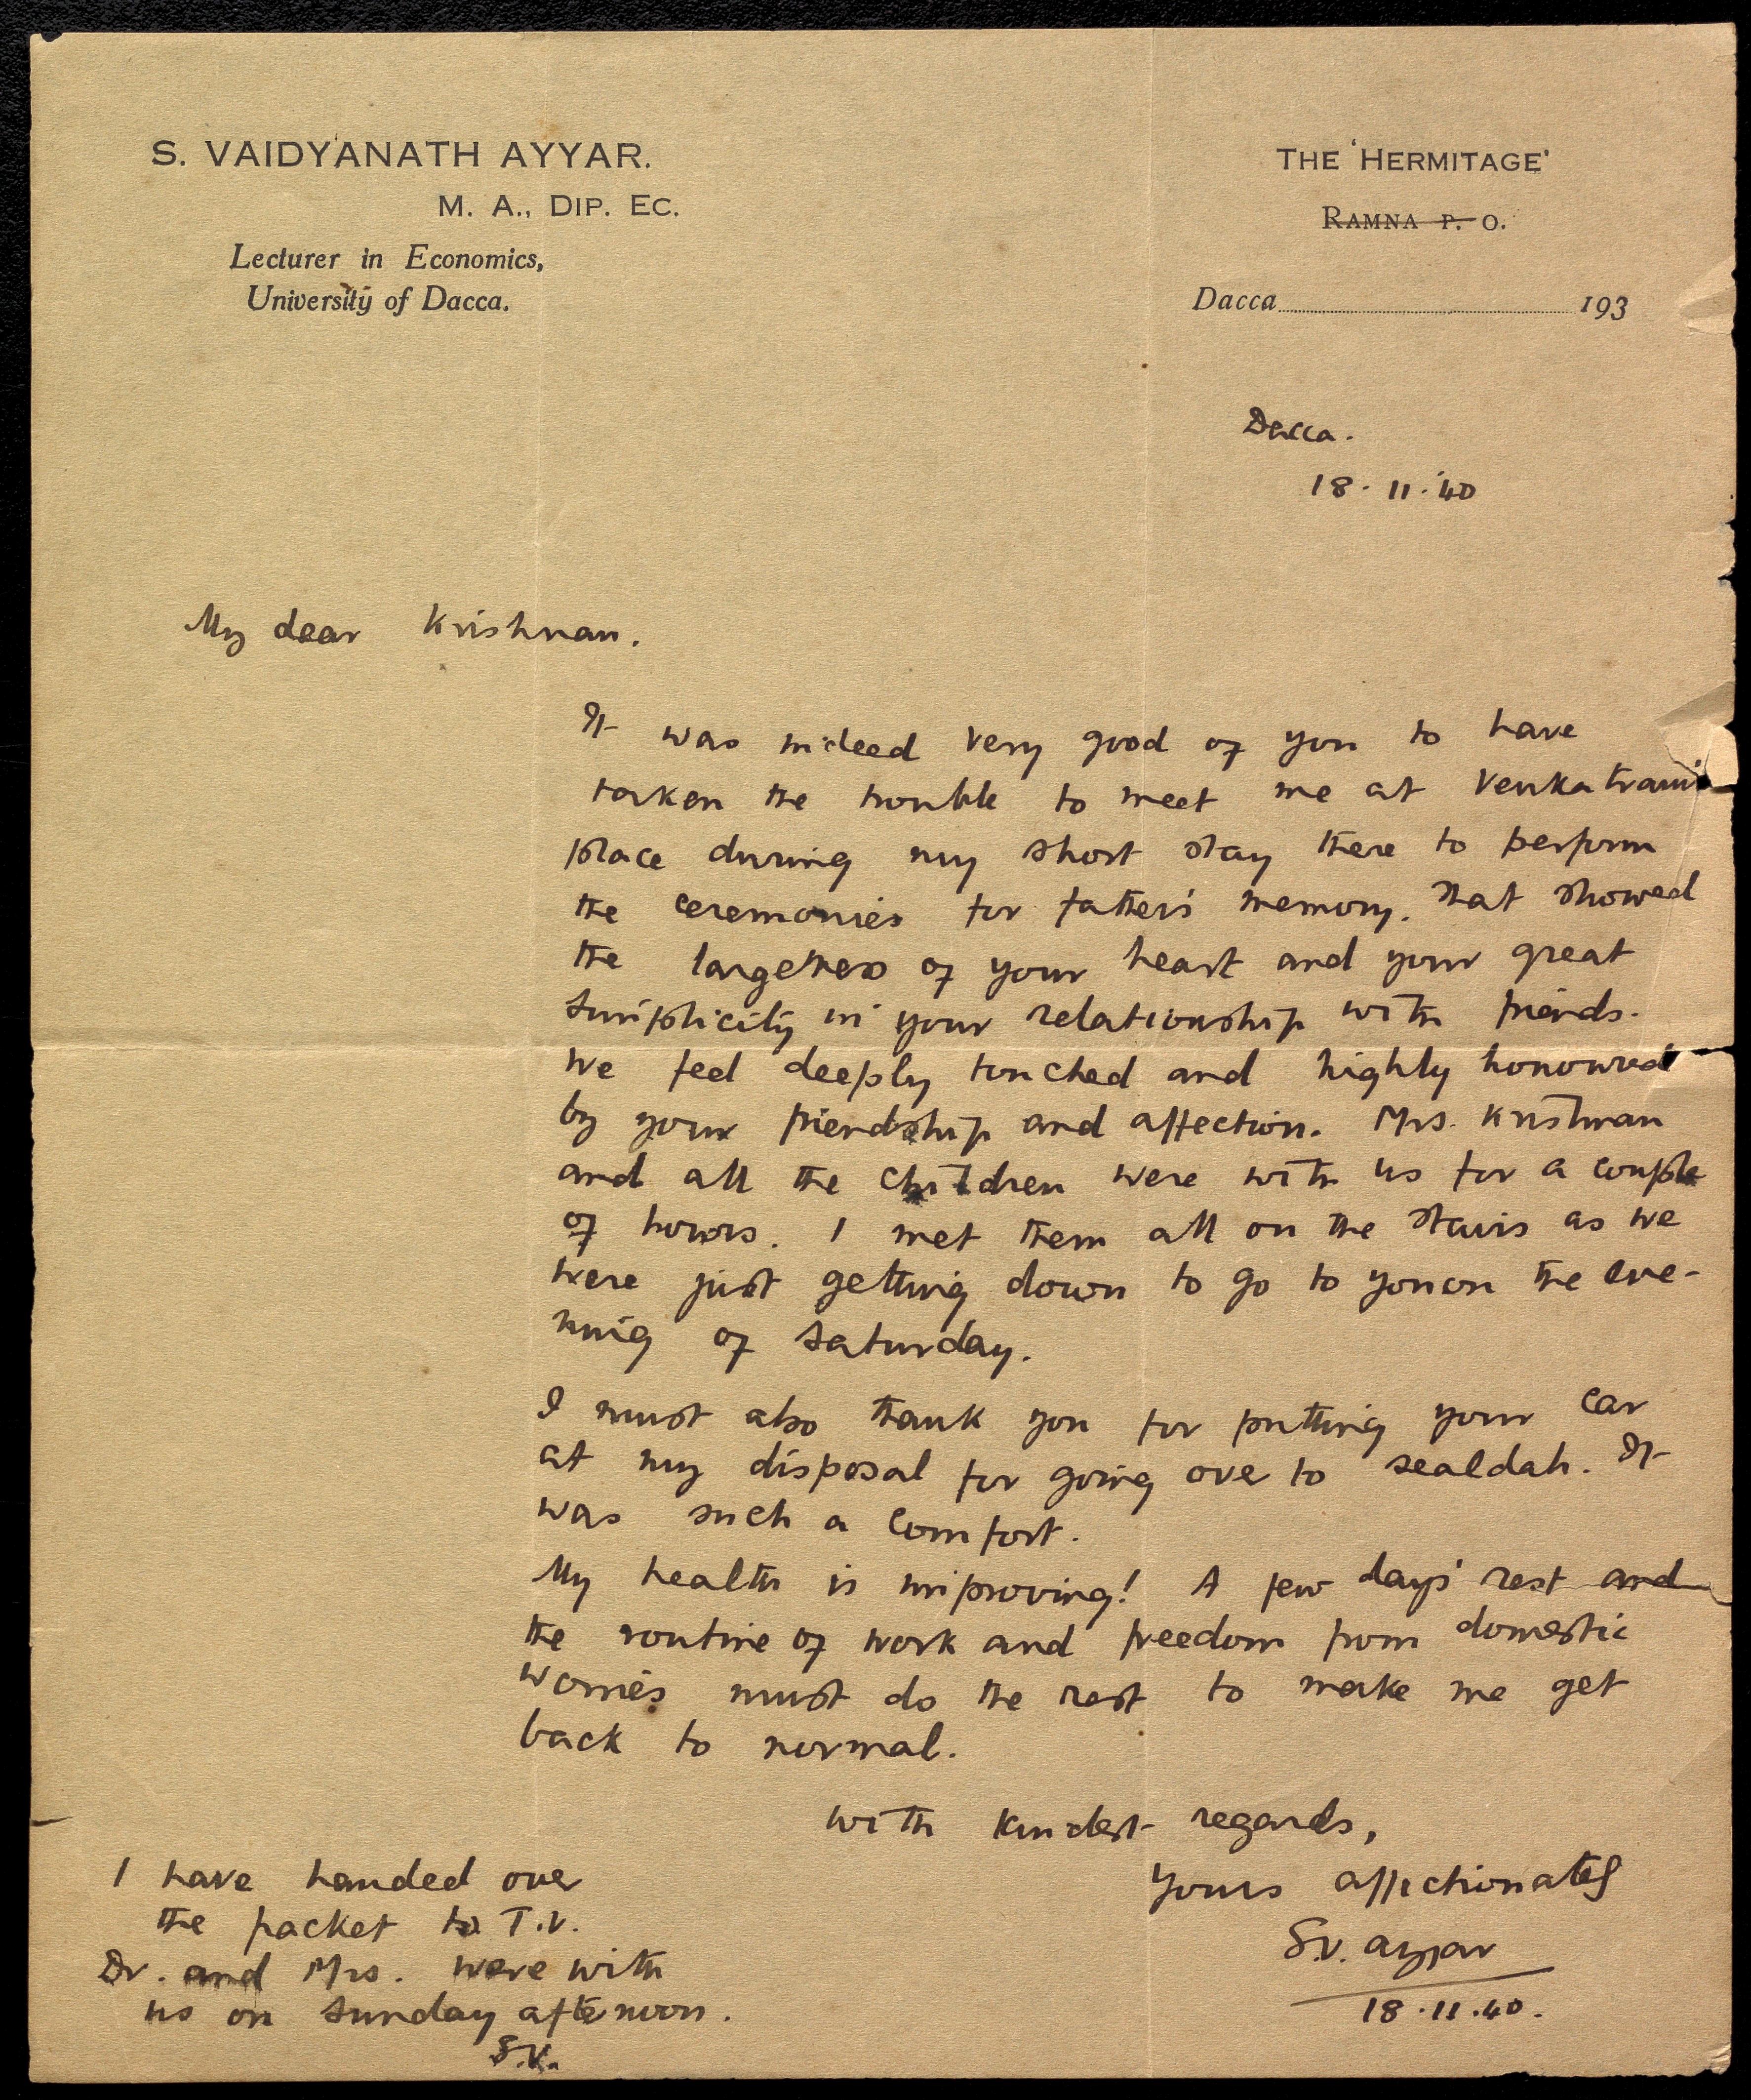 S. VAIDYANATH AYYAR.
M. A., DIP. EC.
Lecturer in Economics,
University of Dacca.
THE 'HERMITAGE'
RAMNA P. O.
Dacca 193
Dacca.
18. 11. '40
My dear Krishnan.
It was indeed very good of you to have
taken the trouble to meet me at Venkatram's
place during my short stay there to perform
the ceremonies for father's memory. That showed
the largeness of your heart and your great
simplicity in your relationship with friends.
We feel deeply touched and highly honoured
by your friendship and affection. Mrs. Krishnan
and all the children were with us for a couple
of hours. I met them all on the stairs as we
were just getting down to go to you on the eve-
ning of Saturday.
I must also thank you for putting your car
at my disposal for going over to Sealdah. It
was such a comfort.
My health is improving! A few days' rest and
the routine of work and freedom from domestic
worries must do the rest to make me get
back to normal.
With kindest regards,
Yours affectionately
S.V. Ayyar
18.11.40.
I have handed over
the packet to T.V.
Dr. and Mrs. were with
us on Sunday afternoon.
S.V.